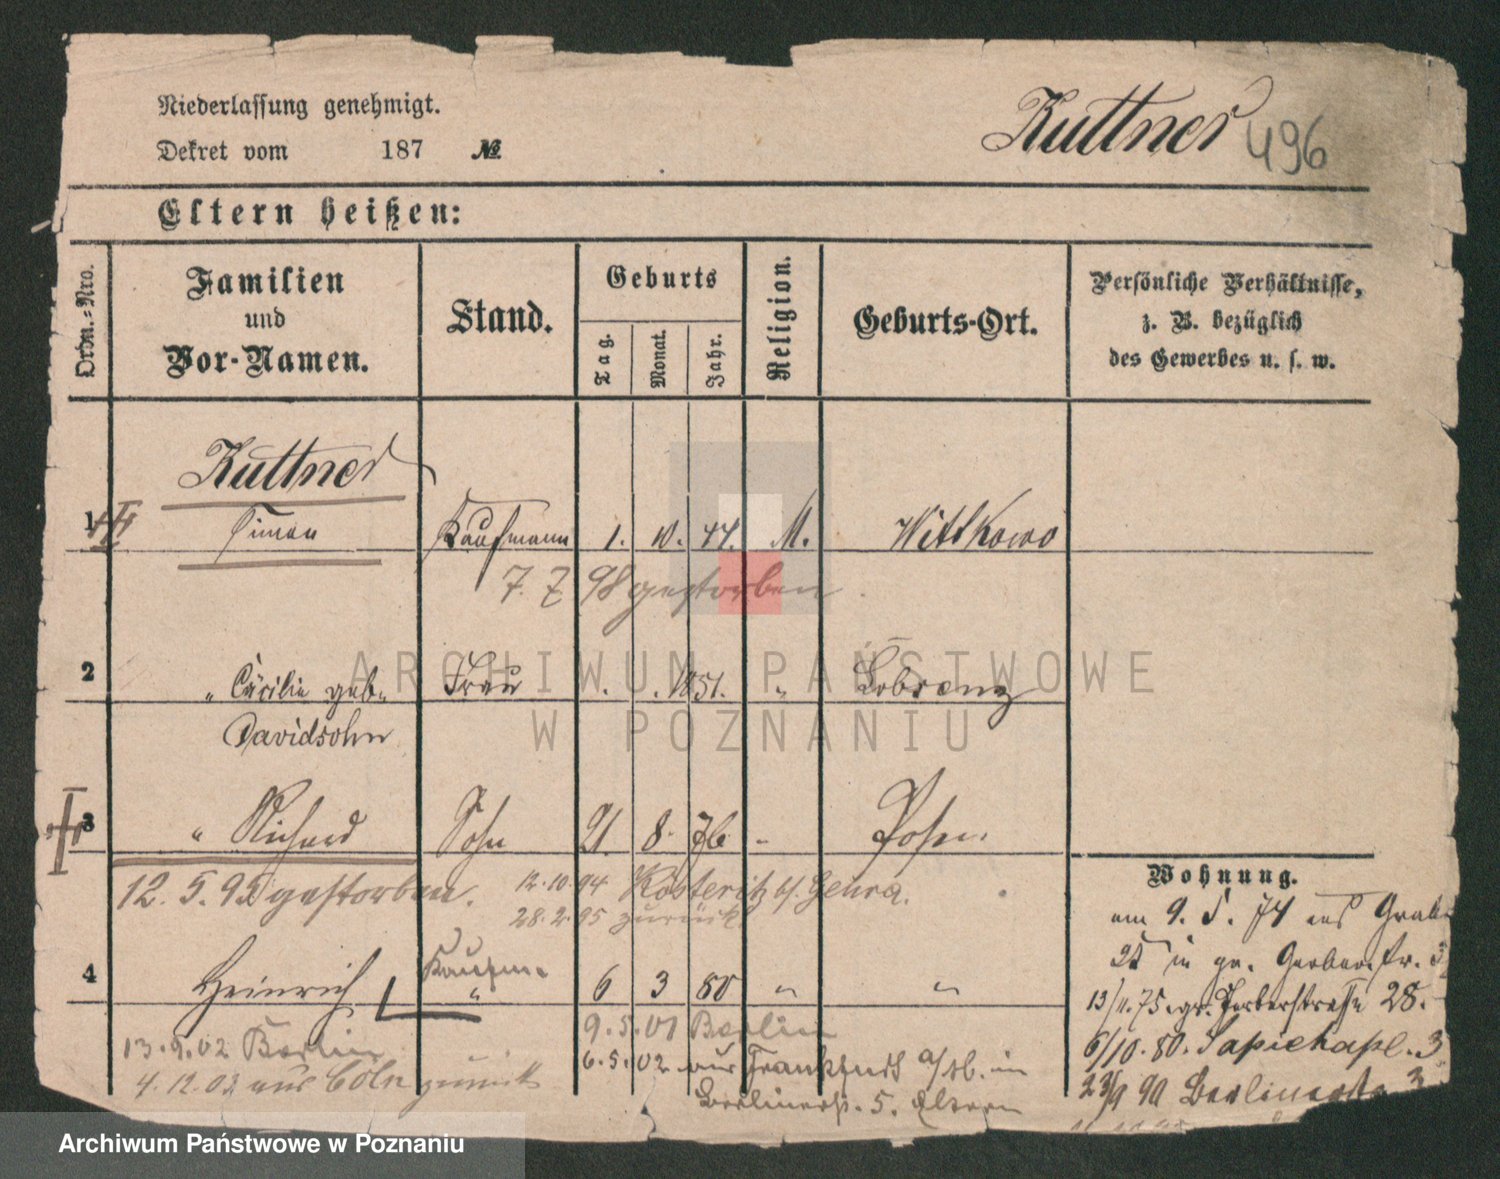 Niederlassung genehmigt.
Dekret vom 187 №
Kuttner 496
Eltern heißen:
Ordn.-Nro.
Familien und Vor-Namen.
Stand.
Geburts
Tag.
Monat.
Jahr.
Religion.
Geburts-Ort.
Persönliche Verhältnisse,
z. B. bezüglich
des Gewerbes u. s. w.
Kuttner
1 Simon Kaufmann 1. 10. 44. M. Wittkowo
7. 7 98 gestorben
2 " Cäcilie geb. Frau 1851. "
Davidsohn
3 " Richard Sohn 21 8. 76 " Posen.
12. 5. 95 gestorben. 12.10.94 Kösteritz b/ Gehra.
28.2.95 zurück
4 Heinrich Kaufm. " 6 3 80 " "
9.5.01 Berlin
13.9.02 Berlin
6.5.02 aus Frankfurt a/ in
4.12.02 aus Cöln zurück
Berlinerstr. 5. Eltern
Wohnung.
am 9. 5. 74 aus
in gr. Gerberstr.
13/11.75. gr. Gerberstrasse 28.
6/10.80. Sapiehapl. 3
23/9 90 Berlinerstr. 3
ARCHIWUM PAŃSTWOWE
W POZNANIU
Archiwum Państwowe w Poznaniu